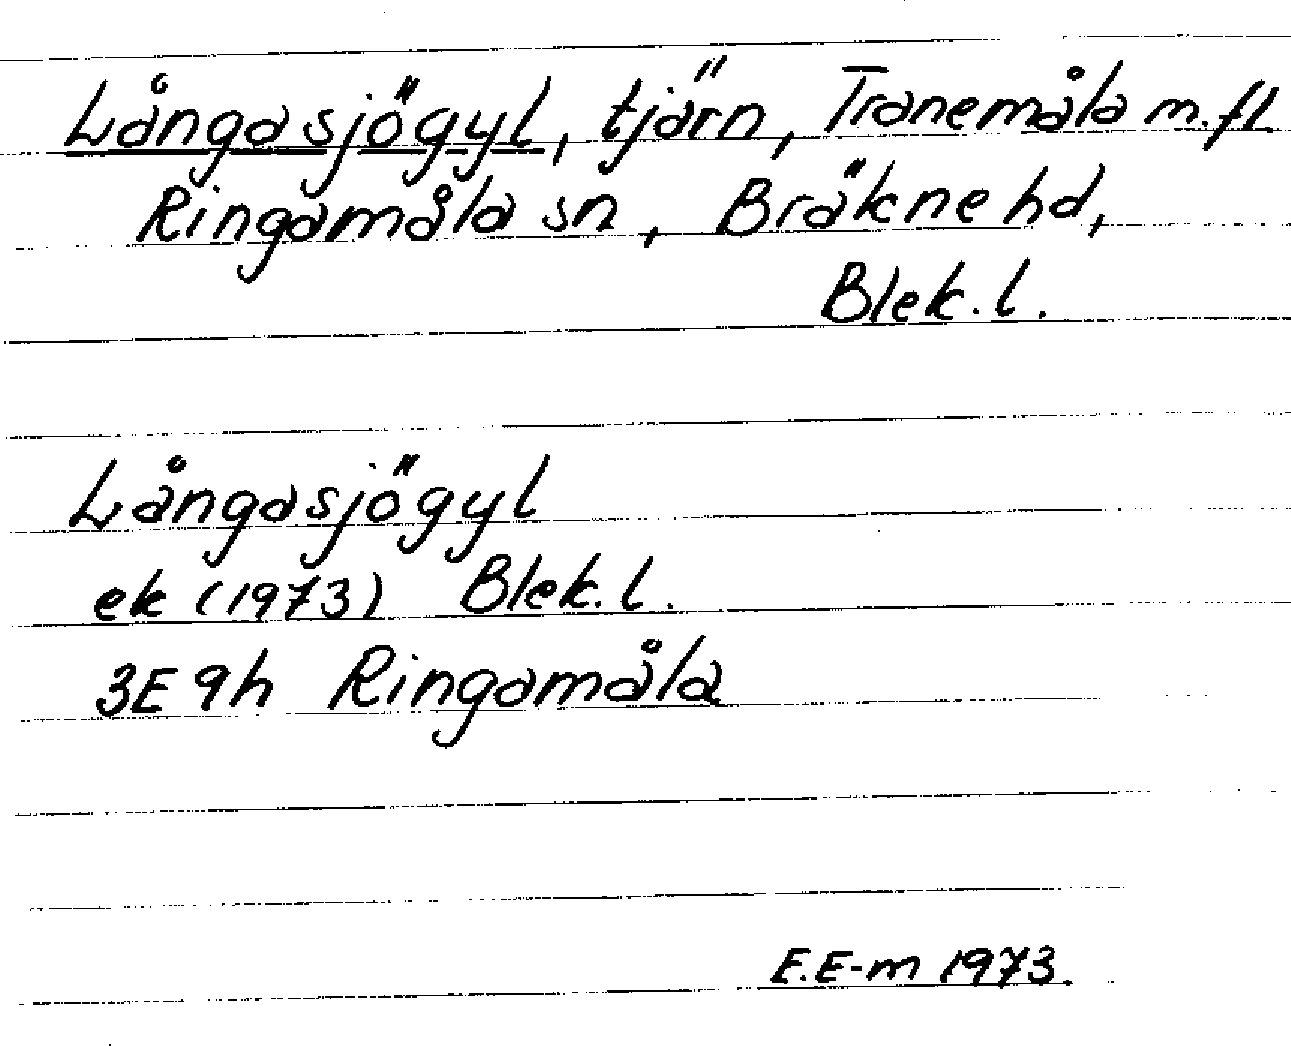 Långasjögyl, tjärn, Tranemåla m.fl
Ringamåla sn, Bräkne hd,
Blek.l.
Långasjögyl
ek (1973) Blek.l.
3E 9h Ringamåla
E.E-m 1973.